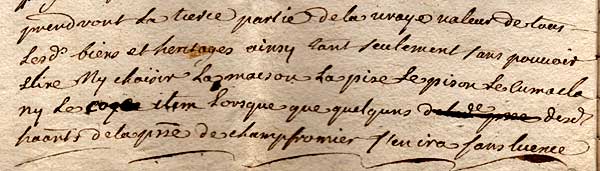 prendront la tierce partie de la vraye valeur de tous
Les ds. biens et heritages ainsy tant seulement sans pouvoir
Elire Ny choisir La maison La pise Le pison Le cumacla
ny le item Lorsque que quelquns desds.
haants de la prse de champfromier s'en ira sans Licence